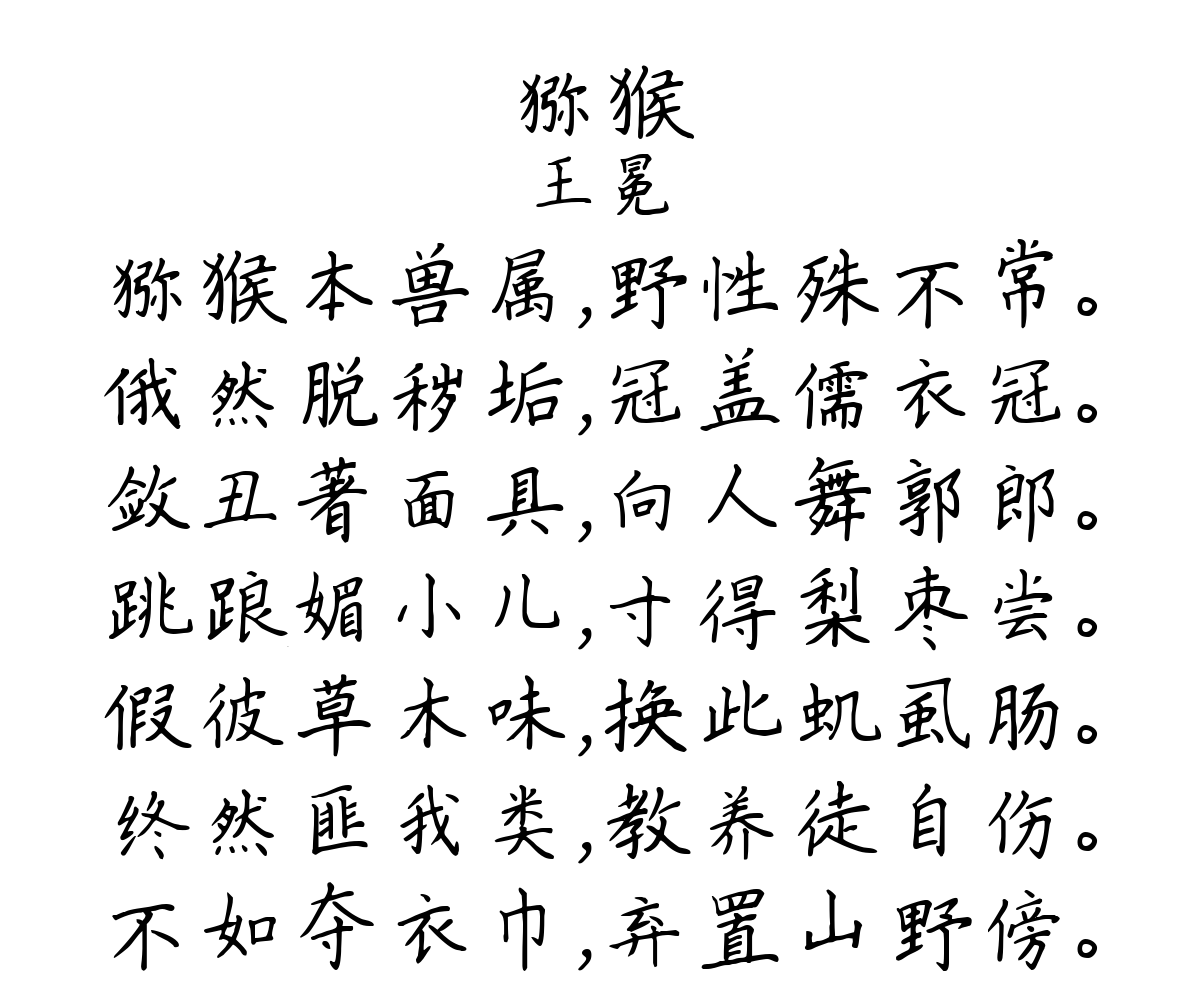 猕猴
王冕
猕猴本兽属,野性殊不常。
俄然脱秽垢,冠盖儒衣冠。
敛丑著面具,向人舞郭郎。
跳踉媚小儿,寸得梨枣尝。
假彼草木味,换此虮虱肠。
终然匪我类,教养徒自伤。
不如夺衣巾,弃置山野傍。